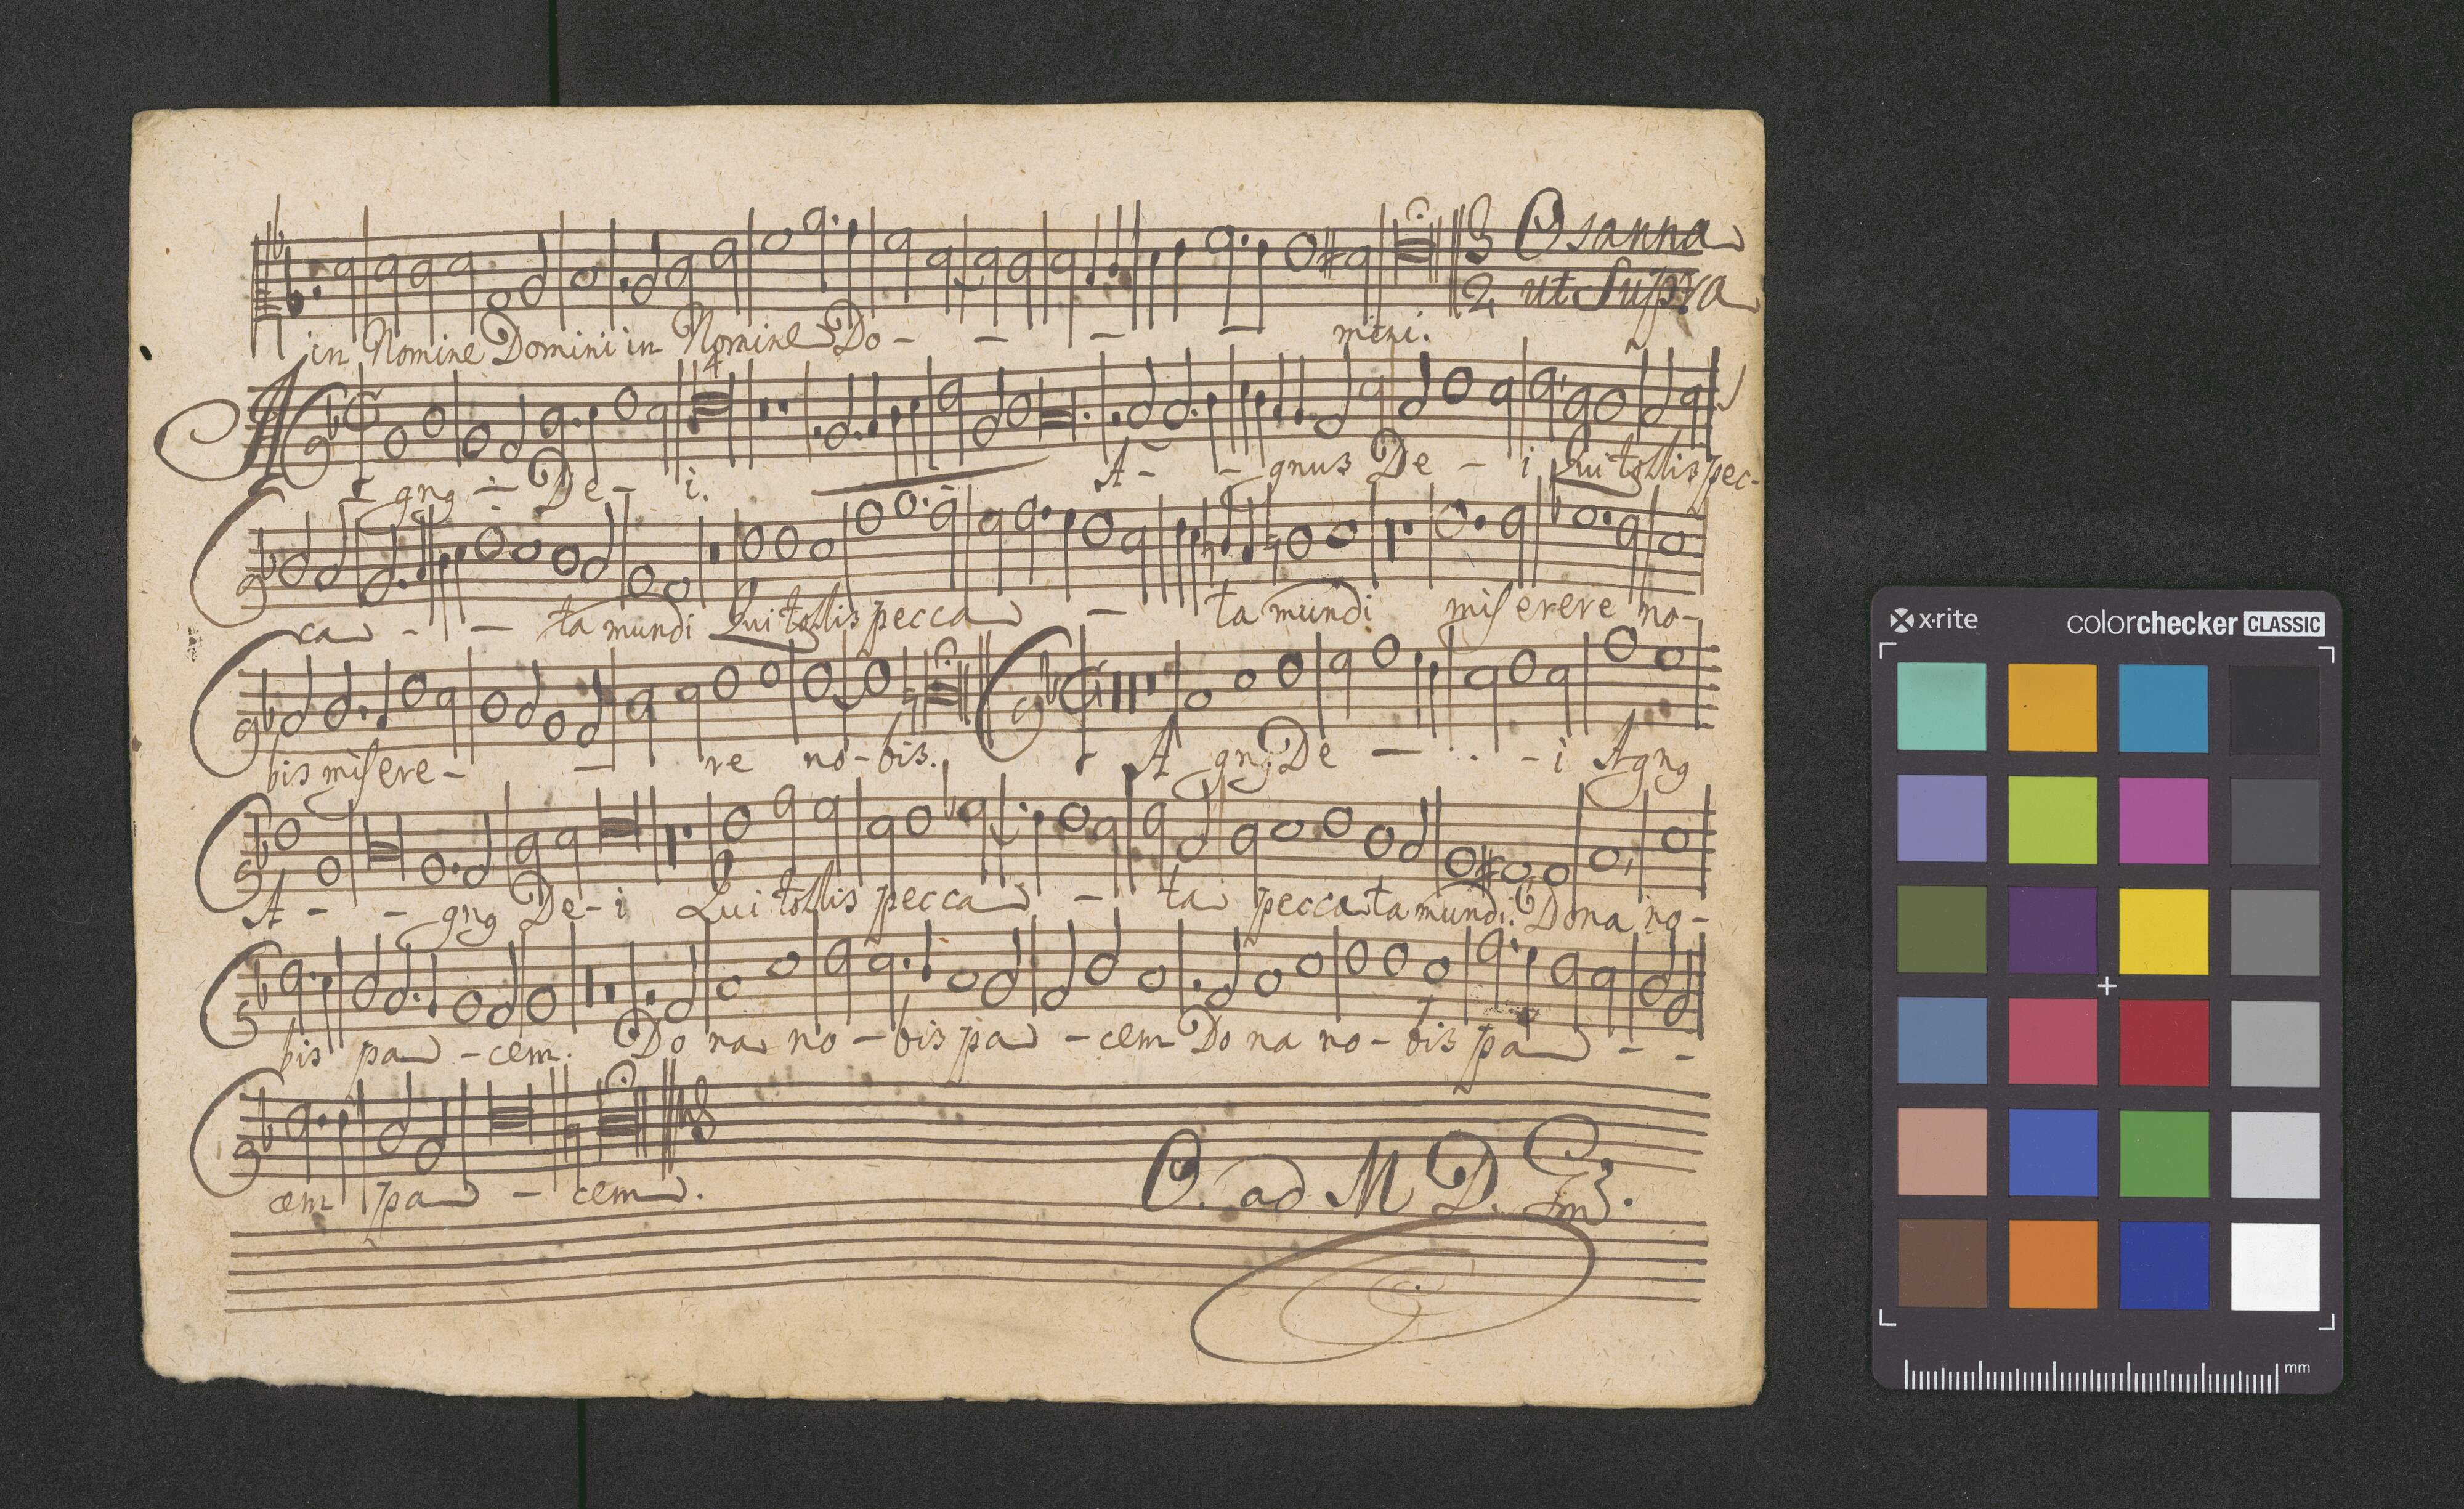 3 Osanna
2 ut Supra
in Nomine Domini in Nomine Do - - - - mini.
4
A gng - De - i. A - - gnus De - i Qui tollis pec-
ca - - ta mundi Qui tollis pecca - ta mundi miserere no-
bis misere - - re no - bis. A gng De - - i Agng
A - - gng De - i Qui tollis pecca - ta peccata mundi. Dona no -
bis pa - cem. Do na no - bis pa - cem Do na no - bis pa - -
cem pa - cem.
O. ad M D
x·rite colorchecker CLASSIC
mm